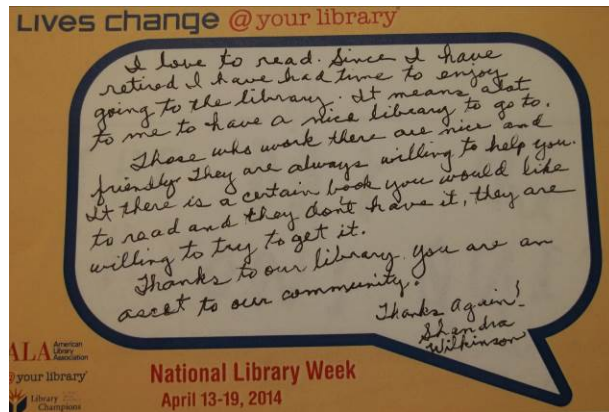 Lives change @ your library®
I love to read. Since I have
retired I have had time to enjoy
going to the library. It means alot
to me to have a nice library to go to.
Those who work there are nice and
friendly. They are always willing to help you.
If there is a certain book you would like
to read and they don't have it, they are
willing to try to get it.
Thanks to our library. You are an
asset to our community.
Thanks Again!
Shandra
Wilkinson
ALA American
Library
Association
@ your library®
Library
Champions
National Library Week
April 13-19, 2014